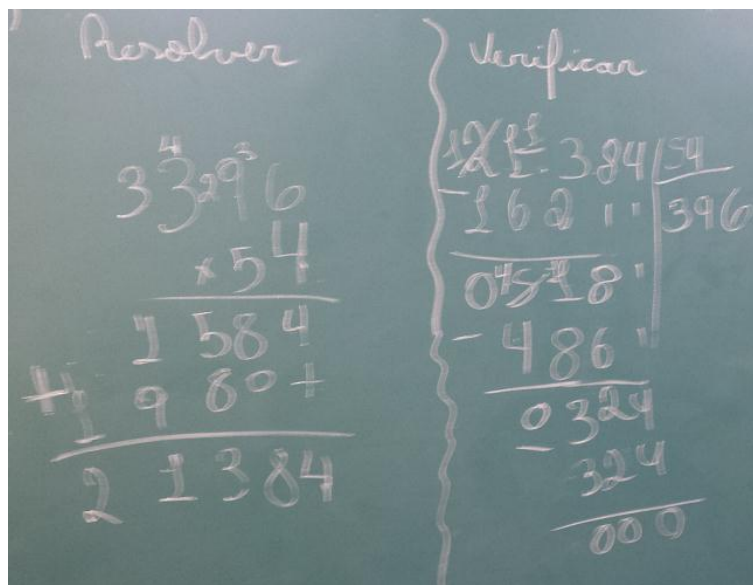 Resolver
396
×54
1584
+1980+
21384
Verificar
21.384 54
-162'' 396
0518'
-486'
0324
-324
000